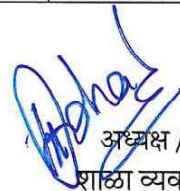 अध्यक्ष /
शाळा व्यव